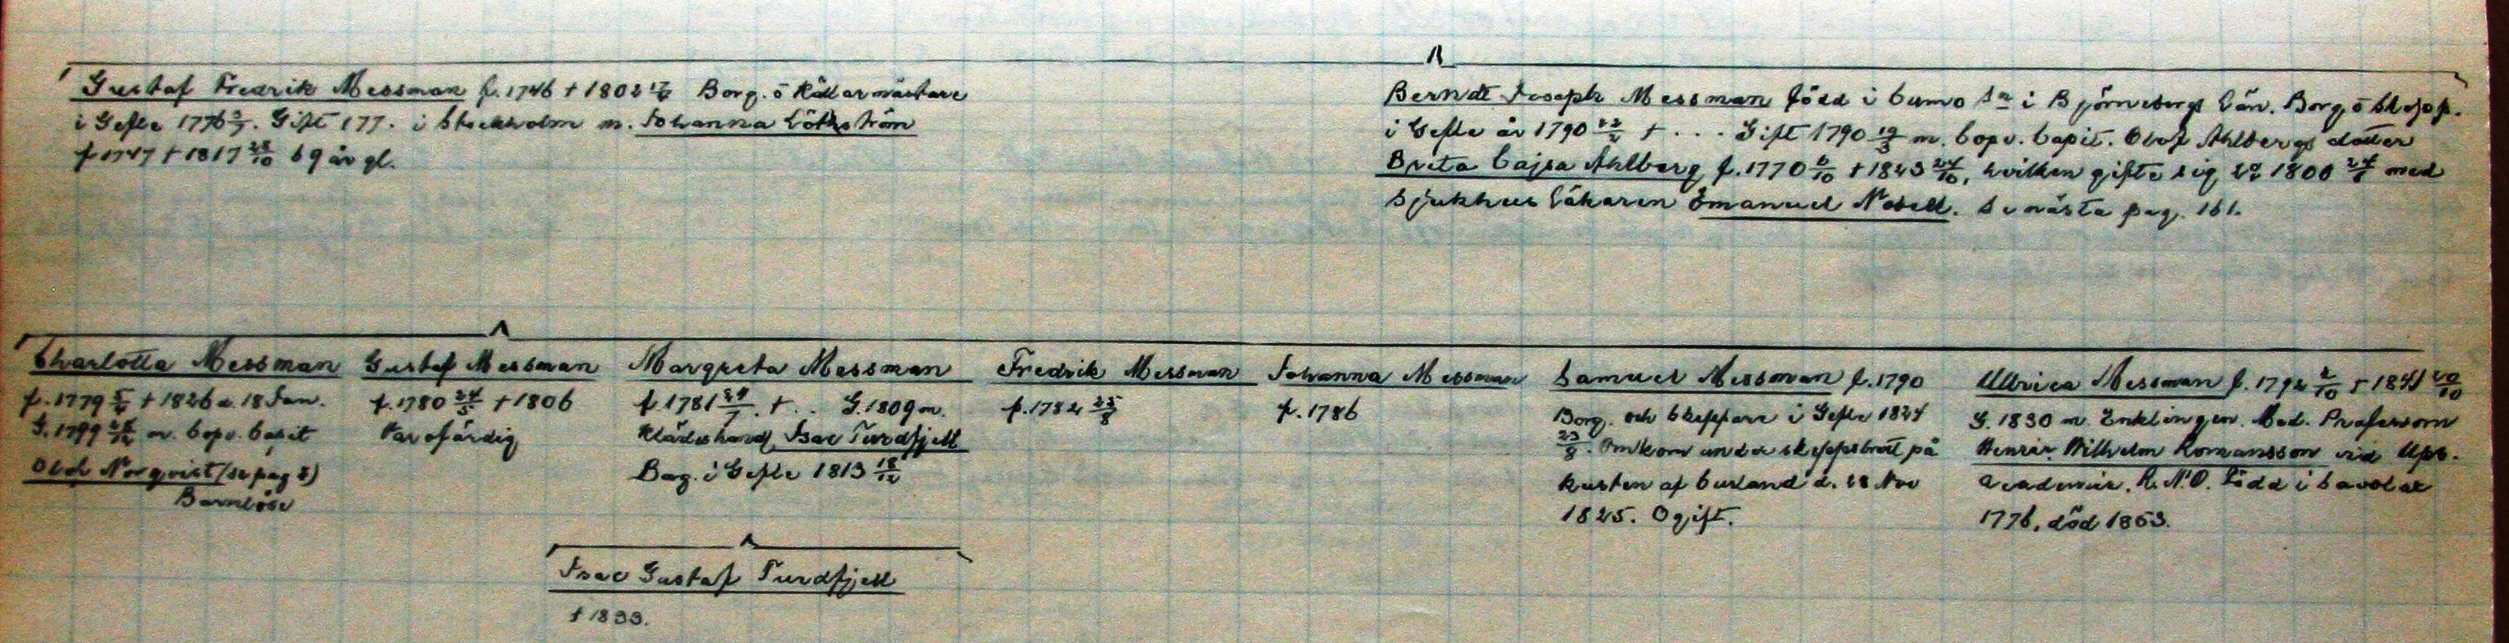 Gustaf Fredrik Messman f. 1746 † 1802 Borg. o Källarmästare
i Gefle 1776 3/7. Gift 177. i Stockholm m. Johanna Löthström
f 1747 † 1817 28/10 69 år gl.
Berndt Joseph Messman född i Cumo Sn i Björneborgs Län. Borg o Skepp.
i Gefle år 1790 22/2 † . . . Gift 1790 19/3 m. Copv. Capit. Olof Ahlbergs dotter
Breta Cajsa Ahlberg f. 1770 6/10 † 1843 24/10, hvilken gifte sig 2a 1800 24/8 med
Sjukhus Läkaren Emanuel Nosell. Se nästa pag. 161.
Charlotta Messman
f. 1779 5/4 † 1826 d. 18 Jan.
G. 1799 28/12 m. Copv. Capit
Olof Norqvist (se pag 8)
Barnlöse
Gustaf Messman
f. 1780 24/5 † 1806
Vanofärdig
Margreta Messman
f. 1781 24/7. † . . G. 1809 m.
Klädeshand. Isac Turdfjell
Borg. i Gefle 1813 18/12
Fredrik Messman
f. 1784 25/8
Johanna Messman
f. 1786
Samuel Messman f. 1790
Borg. och Skeppare i Gefle 1824
23/8. Omkom under skeppsbrott på
kusten af Curland d. 28 Nov
1825. Ogift.
Ullrica Messman f. 1792 2/10 † 1841 20/10
G. 1830 m. Enklingen. Med. Professorn
Henric Wilhelm Romansson vid Ups.
academie. R. N. O. Född i Savolax
1776, död 1853.
Isac Gustaf Turdfjell
† 1833.